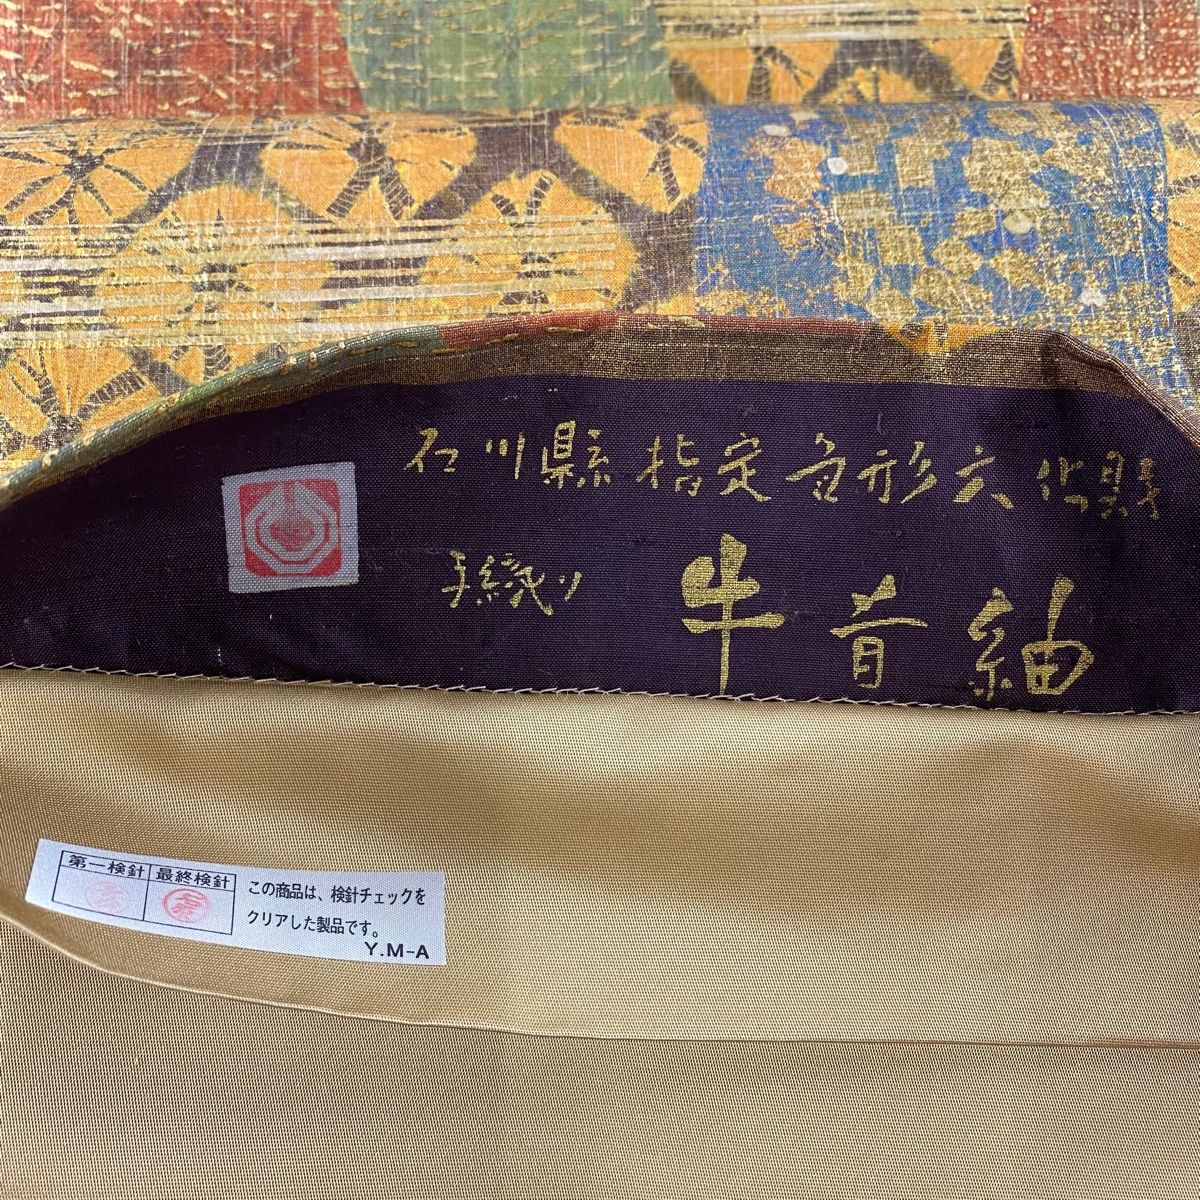 石川縣指定無形文化財
手織り 牛首紬
第一検針 最終検針
この商品は、検針チェックを
クリアした製品です。
Y.M-A